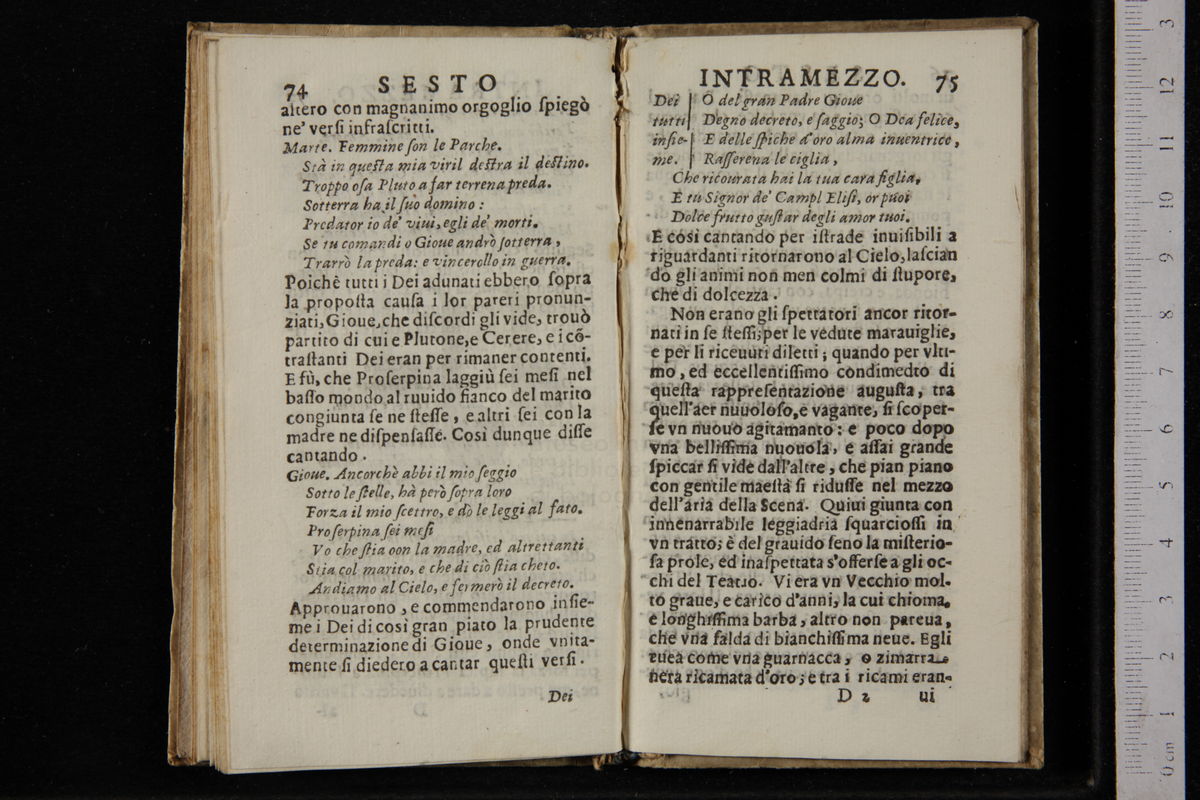 74 SESTO
altero con magnanimo orgoglio ſpiegò
ne' verſi infraſcritti.
Marte. Femmine ſon le Parche.
Stà in queſta mia viril deſtra il deſtino.
Troppo oſa Pluto a far terrena preda.
Sotterra ha il ſuo domino :
Predator io de' viui, egli de' morti.
Se tu comandi o Gioue andrò ſotterra ,
Trarrò la preda: e vincerollo in guerra.
Poichè tutti i Dei adunati ebbero ſopra
la propoſta cauſa i lor pareri pronun-
ziati, Gioue, che diſcordi gli vide, trouò
partito di cui e Plutone, e Cerere, e i cõ-
traſtanti Dei eran per rimaner contenti.
E fù, che Proſerpina laggiù ſei meſi nel
baſſo mondo al ruuido fianco del marito
congiunta ſe ne ſteſſe , e altri ſei con la
madre ne diſpenſaſſe. Così dunque diſſe
cantando .
Gioue. Ancorchè abbi il mio ſeggio
Sotto le ſtelle, hà però ſopra loro
Forza il mio ſcettro, e dò le leggi al fato.
Proſerpina ſei meſi
Vo che ſtia oon la madre, ed altrettanti
Stia col marito, e che di ciò ſtia cheto.
Andiamo al Cielo, e fermerò il decreto.
Approuarono , e commendarono inſie-
me i Dei di così gran piato la prudente
determinazione di Gioue , onde vnita-
mente ſi diedero a cantar queſti verſi .
Dei
INTRAMEZZO. 75
Dei | O del gran Padre Gioue
tutti | Degno decreto, e ſaggio; O Dea felice,
inſie- | E delle ſpiche d'oro alma inuentrice ,
me. | Raſſerena le ciglia ,
Che ricourata hai la tua cara figlia,
E tu Signor de' Campl Eliſi, or puoi
Dolce frutto guſtar degli amor tuoi.
E così cantando per iſtrade inuiſibili a
riguardanti ritornarono al Cielo, laſcian
do gli animi non men colmi di ſtupore,
che di dolcezza .
Non erano gli ſpettatori ancor ritor-
nati in ſe ſteſſi; per le vedute marauiglie,
e per li riceuuti diletti ; quando per vlti-
mo , ed eccellentiſſimo condimedto di
queſta rappreſentazione auguſta, tra
quell'aer nuuoloſo, e vagante, ſi ſcoper-
ſe vn nuouo agitamanto : e poco dopo
vna belliſſima nuouola, e aſſai grande
ſpiccar ſi vide dall'altre , che pian piano
con gentile maeſtà ſi riduſſe nel mezzo
dell'aria della Scena. Quiui giunta con
innenarrabile leggiadria ſquarcioſſi in
vn tratto; è del grauido ſeno la miſterio-
ſa prole, ed inaſpettata s'offerſe a gli oc-
chi del Teatro. Vi era vn Vecchio mol-
to graue, e carico d'anni, la cui chioma,
e longhiſſima barba , altro non pareua,
che vna falda di bianchiſſima neue. Egli
auea come vna guarnacca , o zimarra
nera ricamata d'oro ; e tra i ricami eran-
D 2 ui